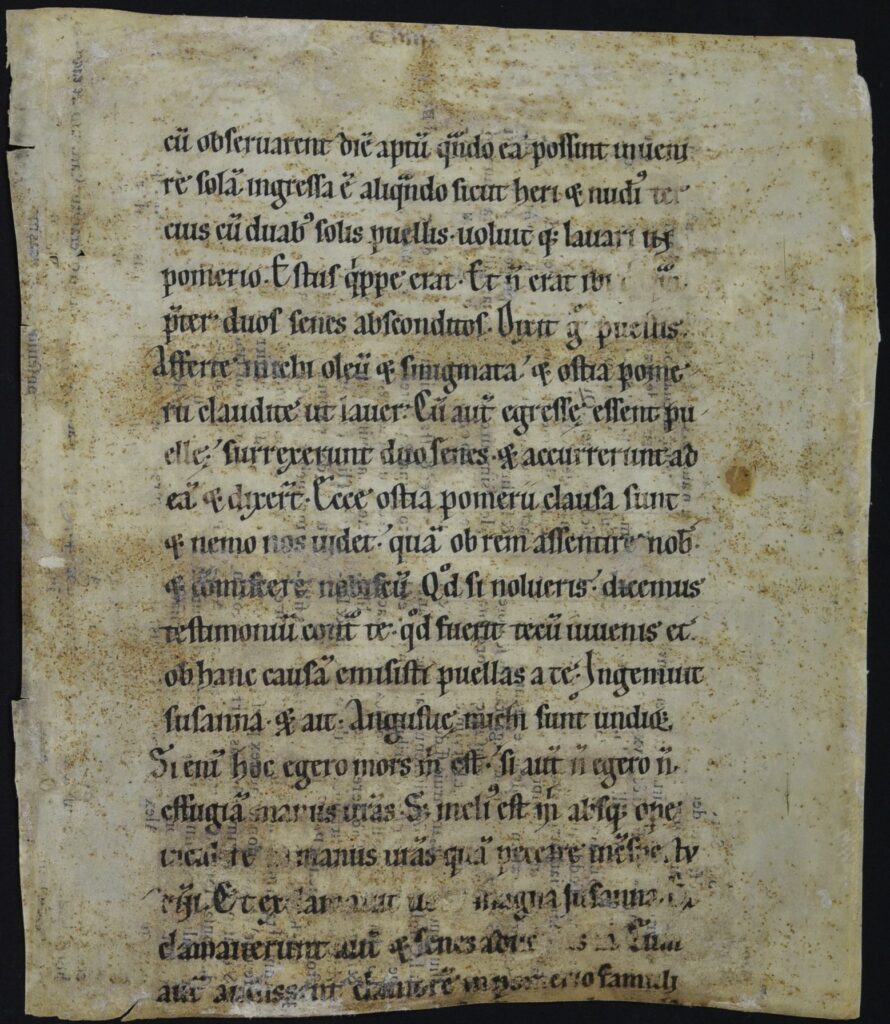 cū obseruarent diē aptū qn̄do eā possint inueni
re solā. ingressa ē aliqn̄do sicut heri & nudiꝰ ter
cius cū duabꝰ solis puellis. uoluit q; lauari in
pomerio. Estus q̓ppe erat. Et n̄ erat ibi
p̄ter duos senes absconditos. Dixit g̊ puellis.
Afferte michi oleū & smigmata. & ostia pome
rii claudite ut lauer. Cū aut̄ egresse essent pu
elle; surrexerunt duo senes. & accurrerunt ad
eā & dixer̄t. Ecce ostia pomerii clausa sunt
& nemo nos uidet. quā ob rem assentire nob̄.
& cōmiscere nobiscū Qͦd si nolueris. dicemus
testimoniū cont̄ te. qͦd fuerit tecū iuuenis et
ob hanc causā emisisti puellas a te. Ingemuit
susanna. & ait. Angustie michi sunt undiq;
Si eni̅ hoc egero mors m̓ est. si aut̄ n̄ egero n̄
effugiā manus ur̄as. S; meliꝰ est m̓ absq; ope
re manus ur̄as quā peccare
Et exclamauit magna susanna. Ex
clamauerunt aut̄ & senes Cum
aut̄ audissent clamorē in pomerio famuli